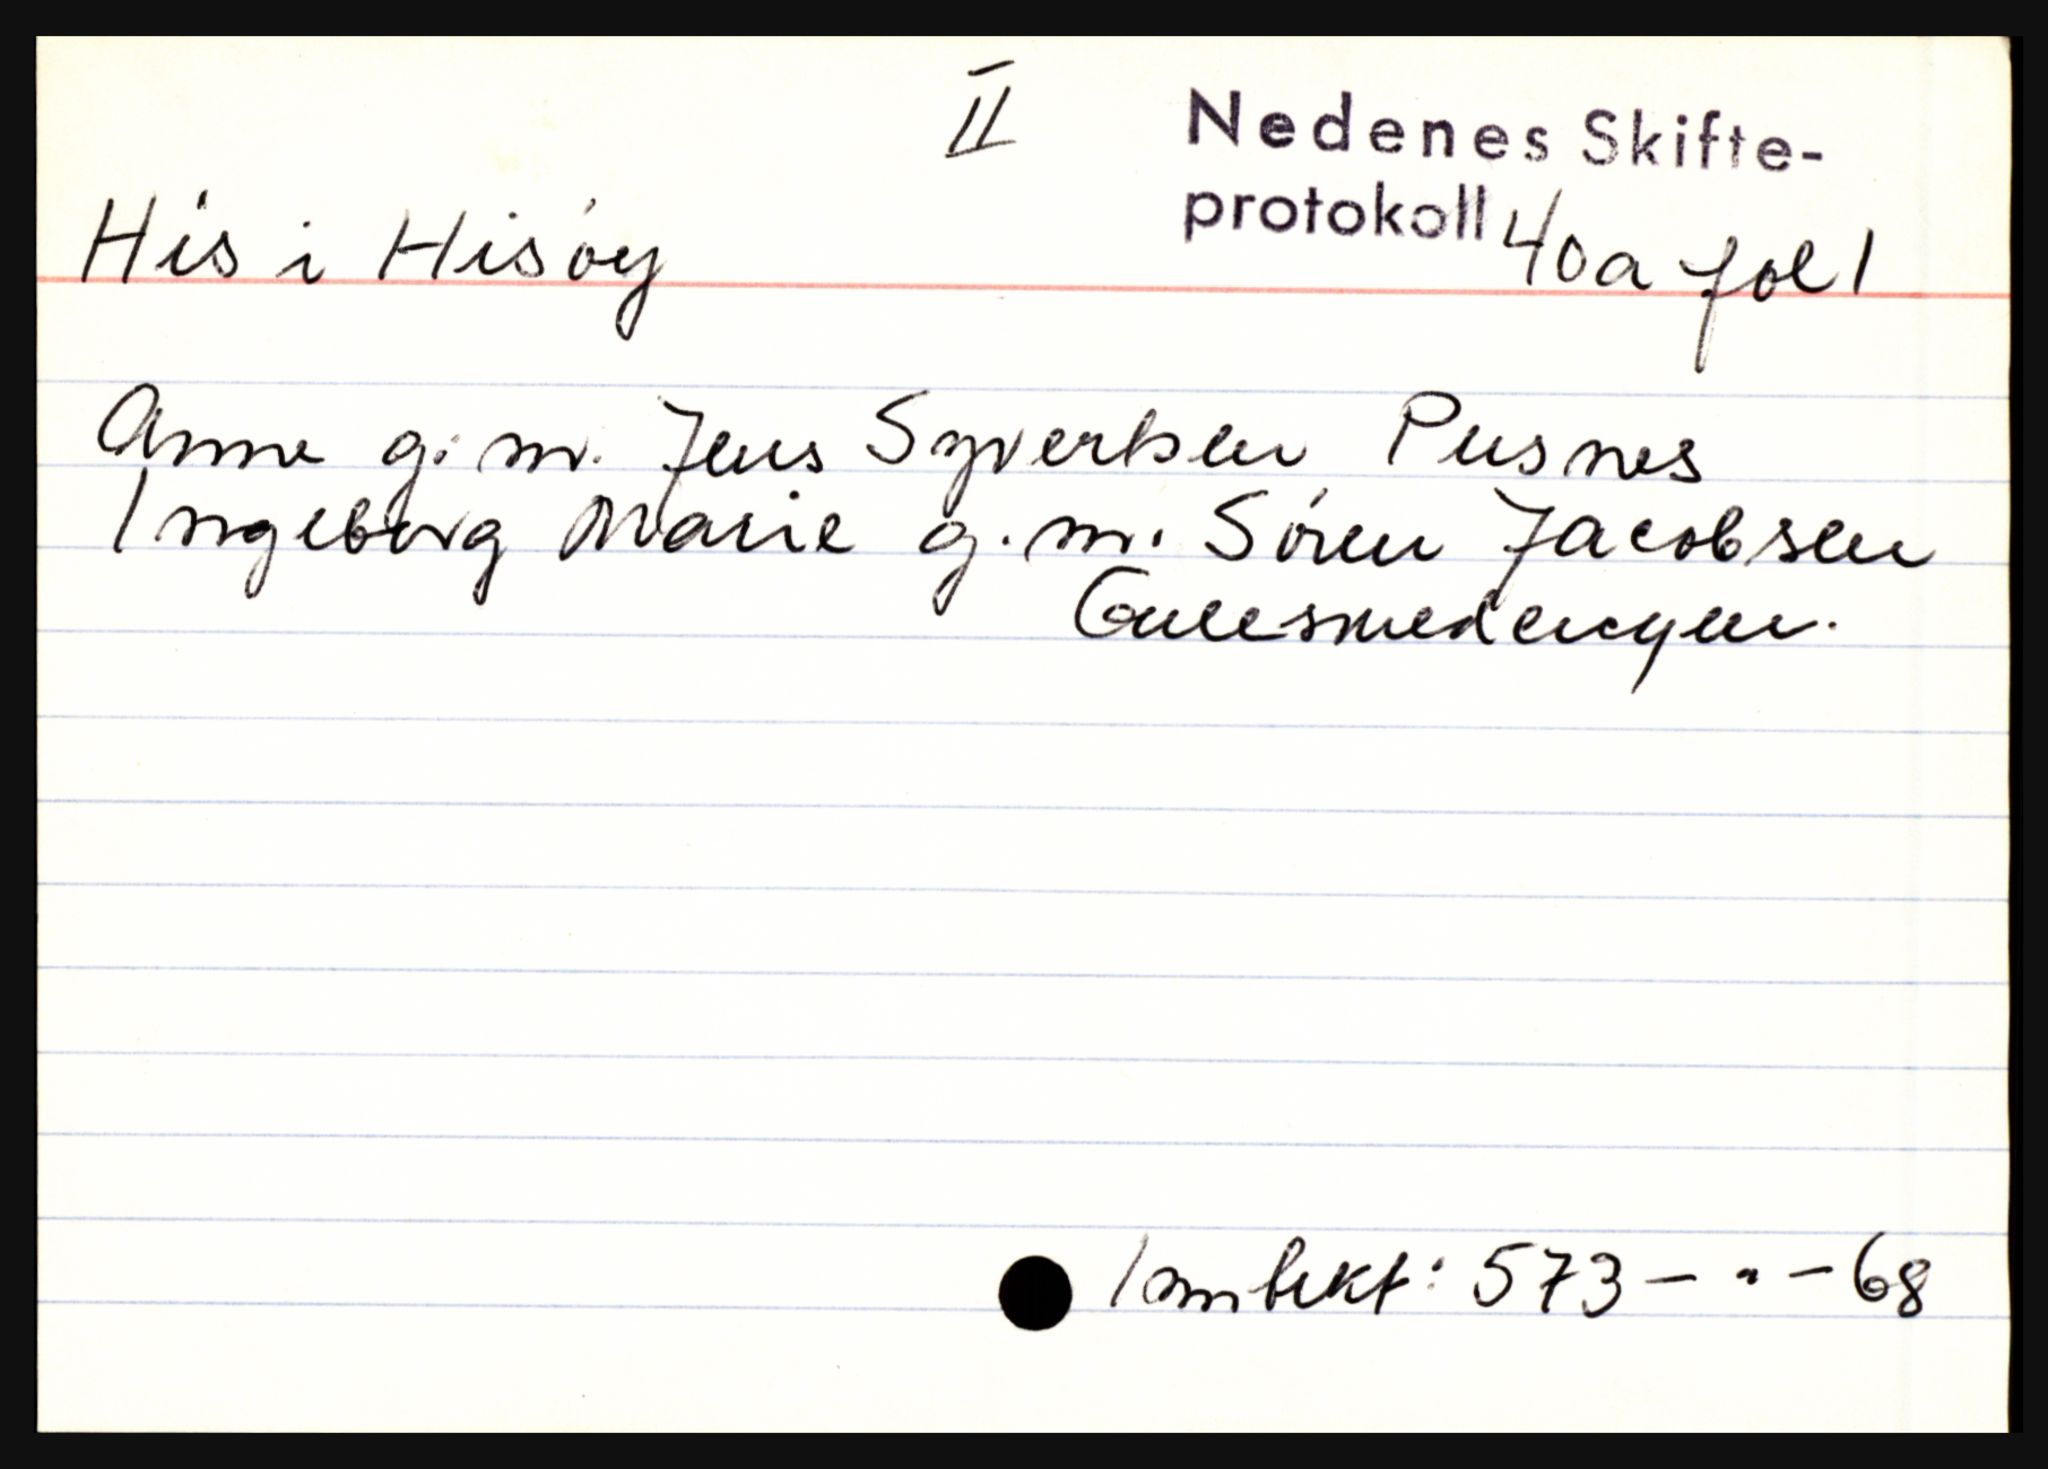 II
Nedenes Skifte-
protokoll 40a fol 1
His i Hisøy
Anne g. m. Jens Syvertsen Pusnes
Ingeborg Marie g. m. Sören Jacobsen
Gullsmedengen.
Inn.bekt: 573 - " - 68